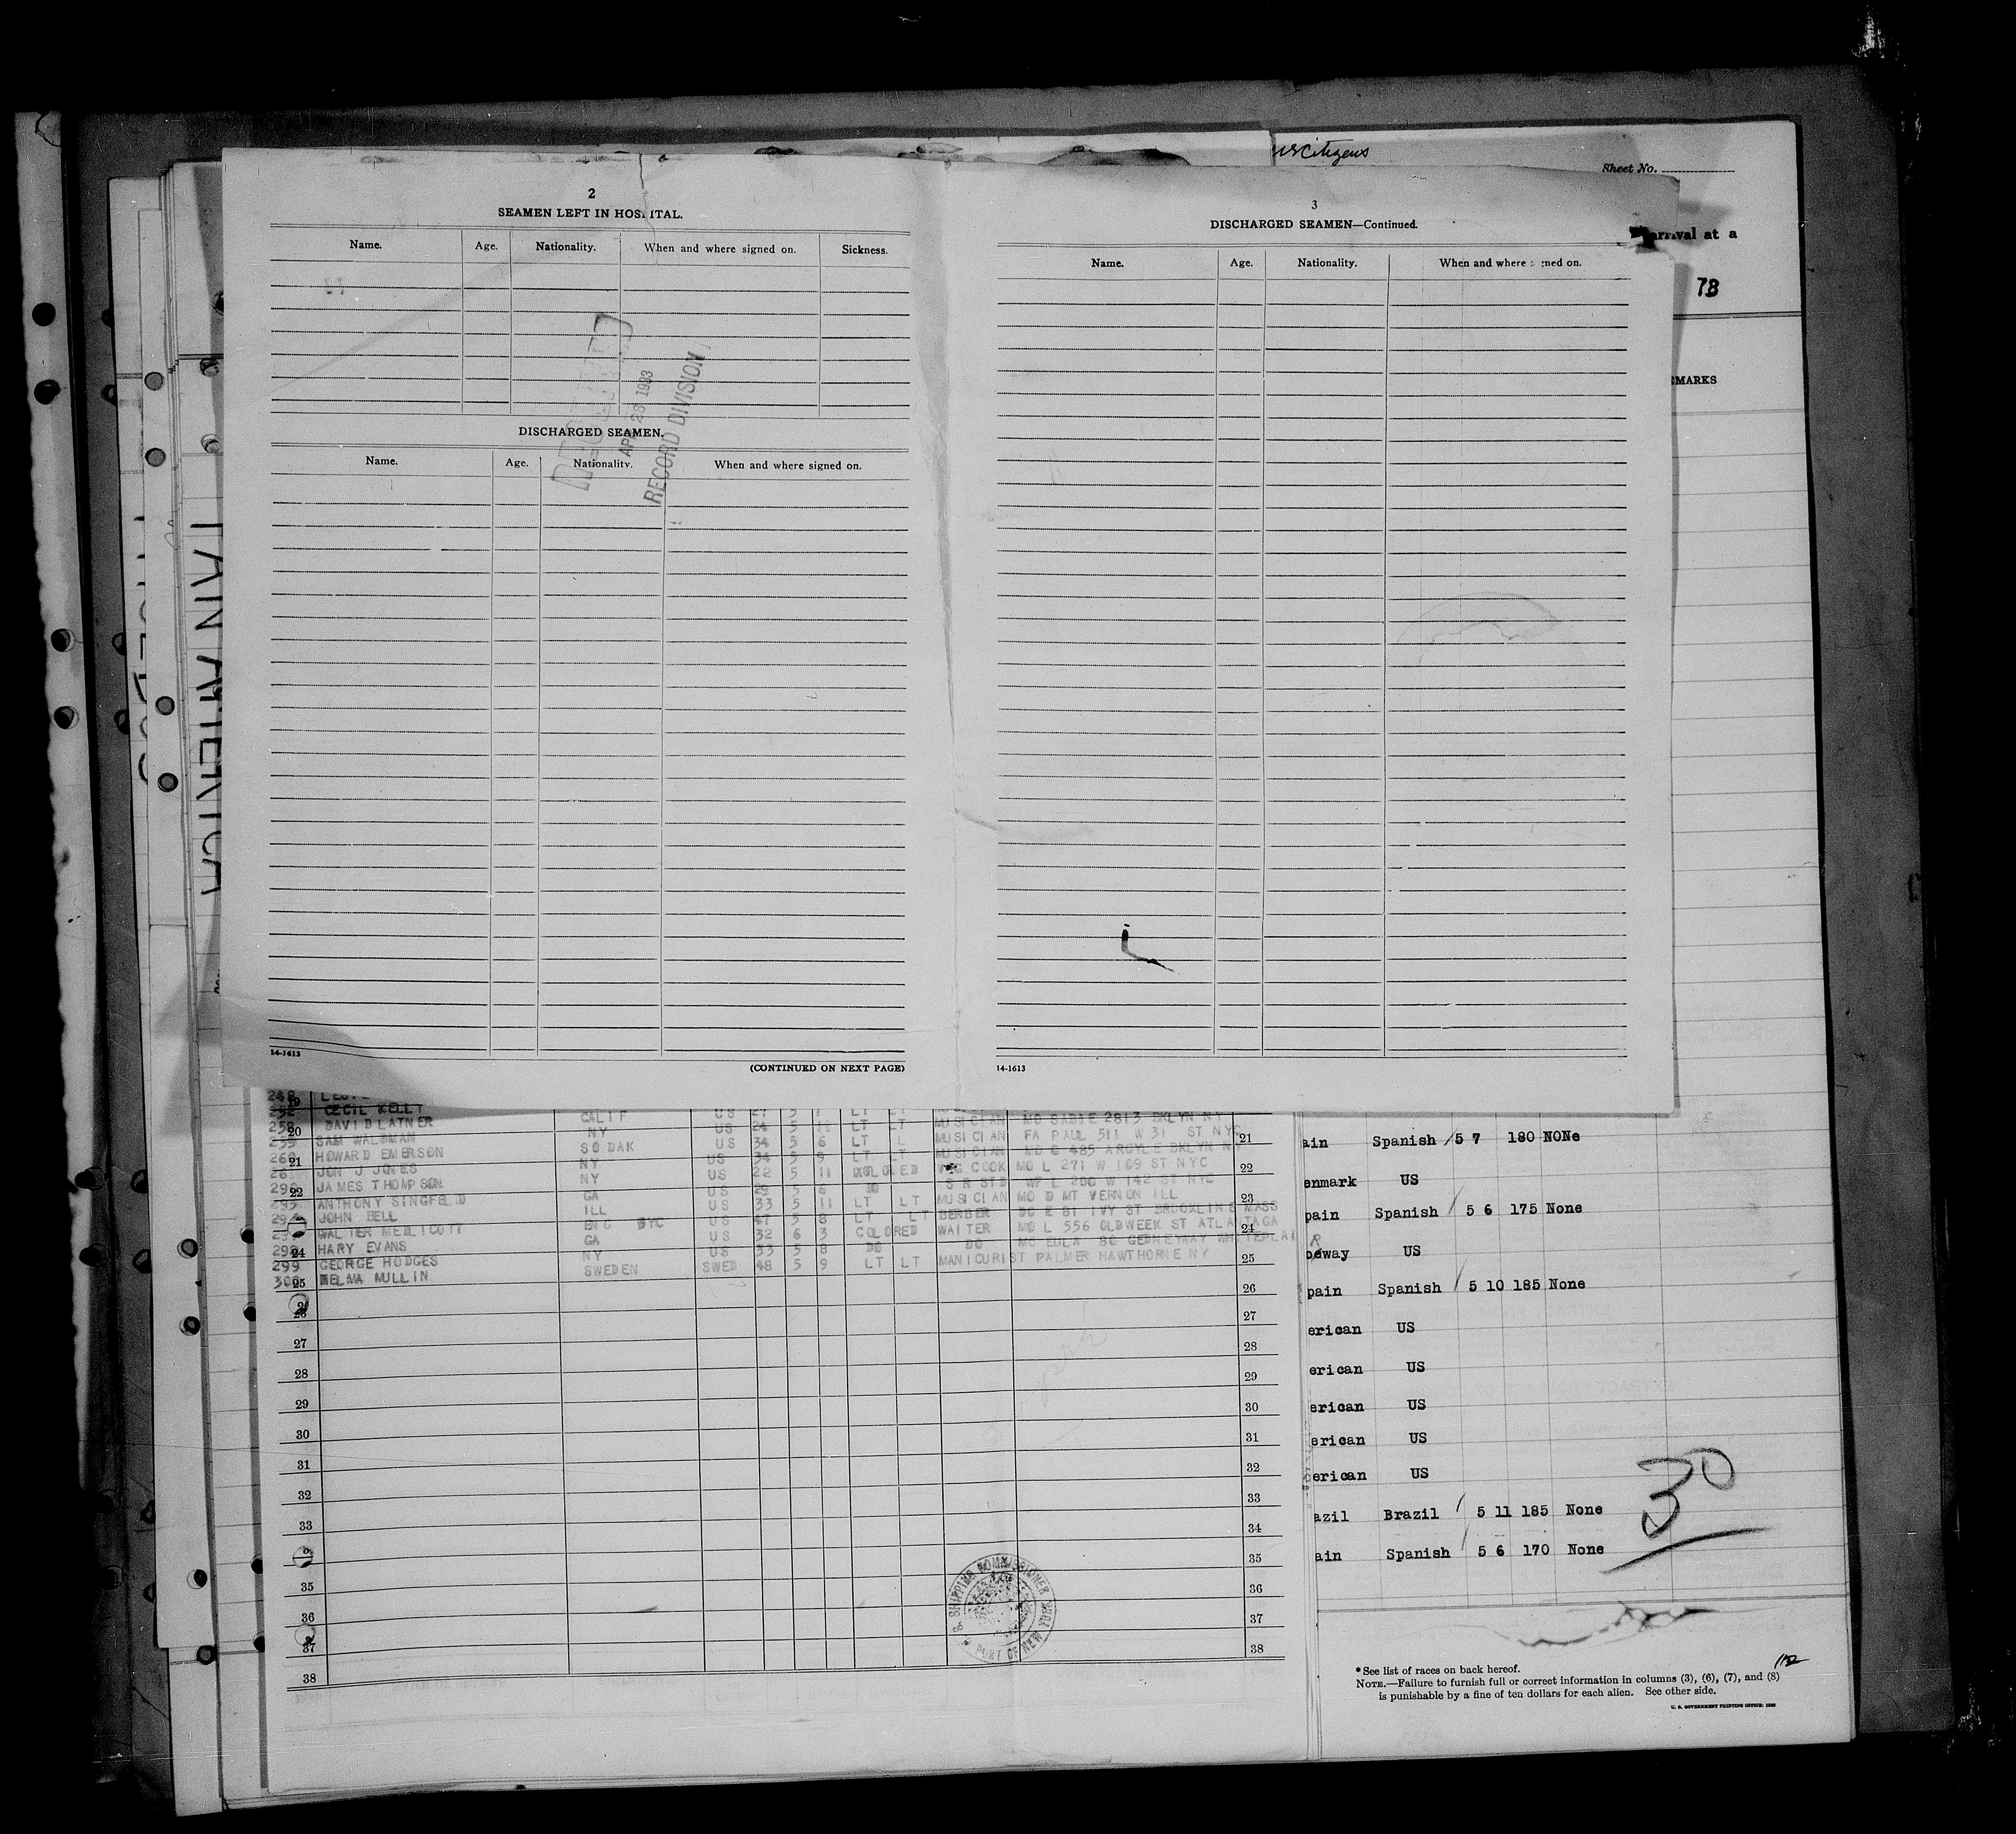 US Citizens
Sheet No.
arrival at a
7B
EMARKS
2
SEAMEN LEFT IN HOSPITAL.
Name. Age. Nationality. When and where signed on. Sickness.
DISCHARGED SEAMEN.
Name. Age. Nationality. When and where signed on.
APR 26 1933
RECORD DIVISION
14-1613
(CONTINUED ON NEXT PAGE)
3
DISCHARGED SEAMEN—Continued.
Name. Age. Nationality. When and where signed on.
14-1613
CECIL KELLY CALIF US 27 5
DAVID LATNER NY US 24 5 MUSICIAN MO SADIE 2813 BKLYN NY
SAM WALDMAN SO DAK US 34 5 6 LT MUSICIAN FA PAUL 511 W 31 ST NYC
HOWARD EMERSON NY US 34 5 9 LT LT MUSICIAN MO C 485 ARGYLE BKLYN N
JON J JONES NY US 22 5 11 COLORED COOK MO L 271 W 109 ST NYC
JAMES THOMPSON GA US 29 5 6 DO S R STD WF L 200 W 142 ST NYC
ANTHONY SINGFELD ILL US 33 5 11 LT LT MUSICIAN MO D MT VERNON ILL
JOHN BELL US 47 5 8 LT LT BERBER 81 IVY ST BROOKLINE MASS
WALTER MEDLICOTT GA US 32 6 3 COLORED WAITER MO L 556 OLDWEEK ST ATLANTAGA
HARY EVANS NY US 33 5 8 DO DO MO EULA 80 GEDNEYWAY WHITEPLAI
299 GEORGE HODGES SWEDEN SWED 48 5 9 LT LT MANICURIST PALMER HAWTHORNE NY
300 MULLIN
27
28
29
30
31
32
33
35
36
37
38
21
22
23
24
25
26
27
28
29
30
31
32
33
34
35
36
37
38
SHIPPING COMMISSIONER
PORT OF NEW YORK
ain Spanish 5 7 180 NONe
enmark US
pain Spanish 5 6 175 None
US
pain Spanish 5 10 185 None
erican US
erican US
erican US
erican US
erican US
azil Brazil 5 11 185 None
ain Spanish 5 6 170 None
30
112
* See list of races on back hereof.
NOTE.—Failure to furnish full or correct information in columns (3), (6), (7), and (8)
is punishable by a fine of ten dollars for each alien. See other side.
U. S. GOVERNMENT PRINTING OFFICE: 1930